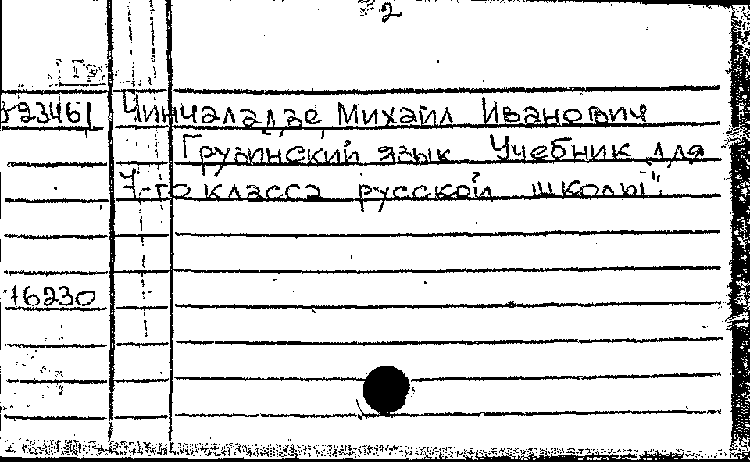 2
23461 Чинчаладзе Михаил Иванович
Грузинский язык Учебник для
4-го класса русской школы".
16230